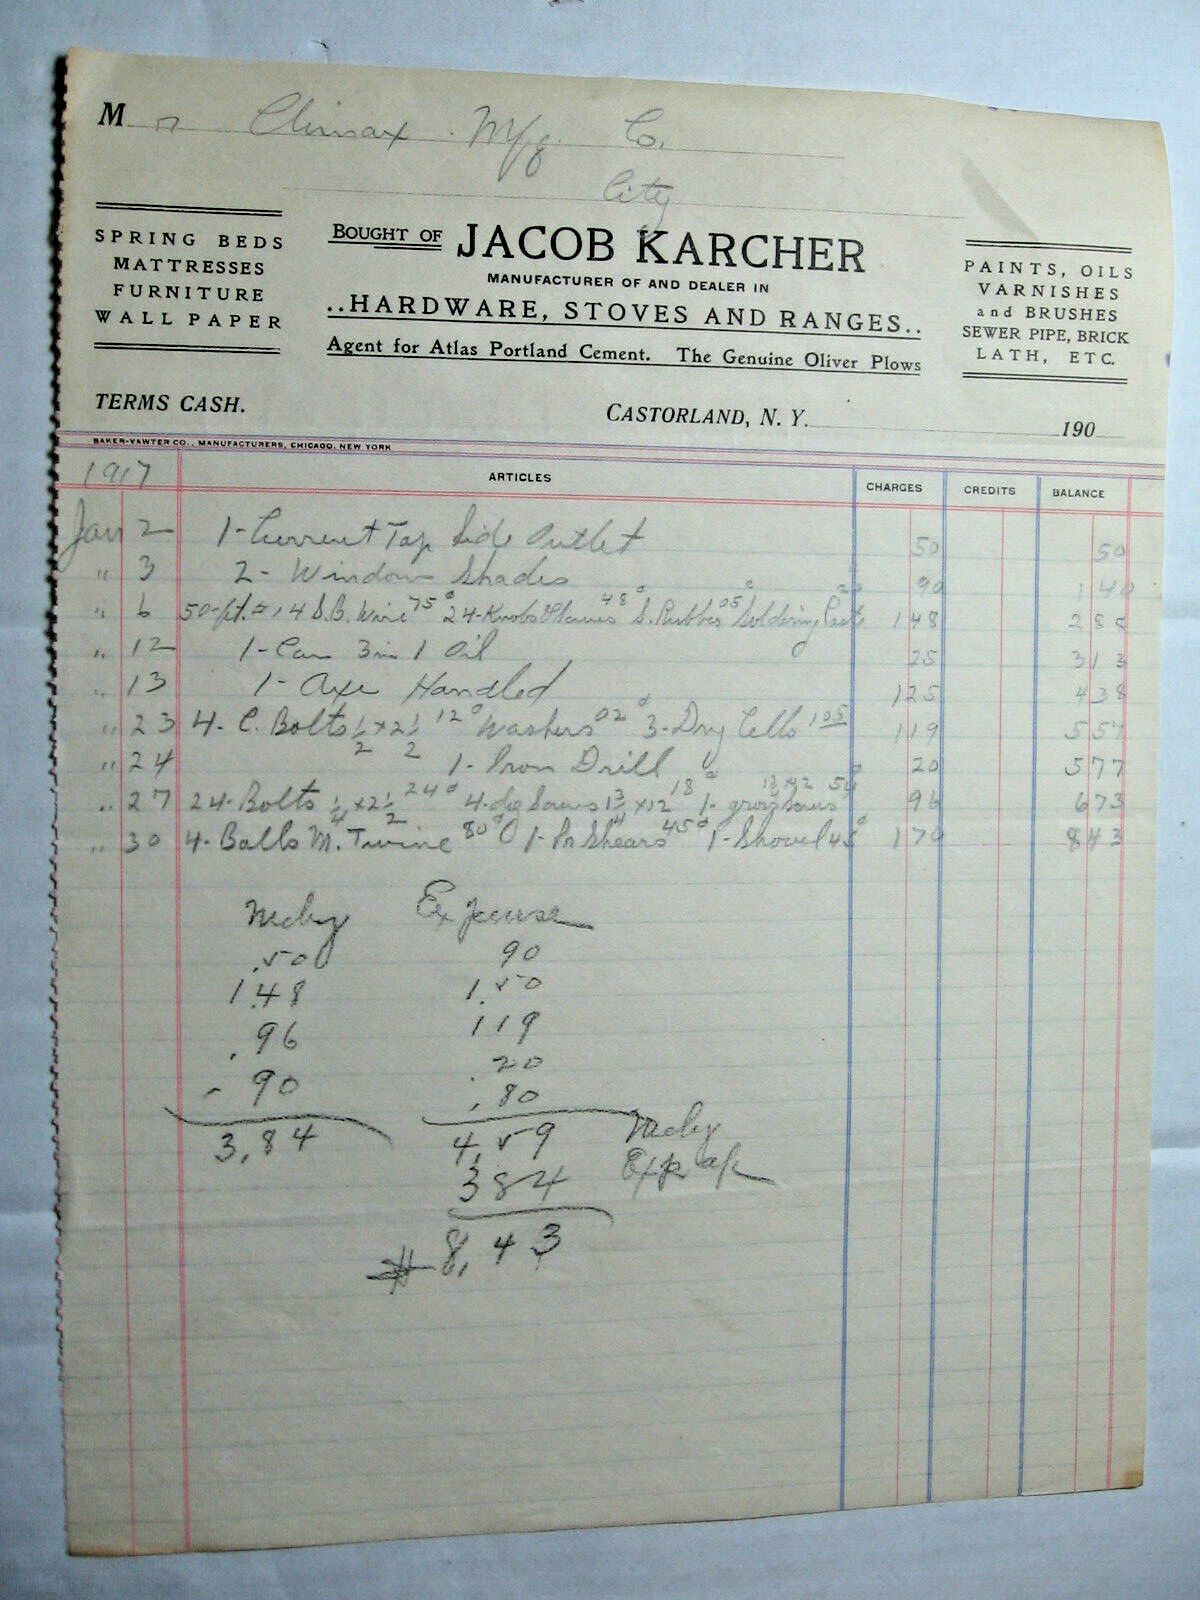 M Climax Mfg. Co.
City
SPRING BEDS
MATTRESSES
FURNITURE
WALL PAPER
BOUGHT OF JACOB KARCHER
MANUFACTURER OF AND DEALER IN
..HARDWARE, STOVES AND RANGES..
Agent for Atlas Portland Cement. The Genuine Oliver Plows
PAINTS, OILS
VARNISHES
and BRUSHES
SEWER PIPE, BRICK
LATH, ETC.
TERMS CASH.
CASTORLAND, N. Y. 190
BAKER-VAWTER CO., MANUFACTURERS, CHICAGO, NEW YORK
1917 ARTICLES CHARGES CREDITS BALANCE
Jan 2 1- Current Tap Side Outlet 50 50
" 3 2- Window Shades 90 1 40
" 6 50-ft. #14 S.B. Wire 75¢ 24-Knobs 48¢ S. Rubber 05¢ Soldering Paste 1 48 2 88
" 12 1- Can 3 in 1 Oil 25 3 13
" 13 1- Axe Handled 1 25 4 38
" 23 4- C. Bolts 1/2 x 2 1/2 12¢ Washers 02¢ 3- Dry Cells 105 1 19 5 57
" 24 1- Iron Drill 20 5 77
" 27 24- Bolts 1/4 x 2 1/2 24¢ 4- Lag Screws 18¢ 1- 54 96 6 73
" 30 4- Balls M. Twine 80¢ 1- Pr Shears 45¢ 1- Shovel 45¢ 1 70 8 43
Mchy Expense
.50 90
1.48 1.50
.96 119
.90 .20
.80
3,84 4,59 Mchy
384 Exp
# 8,43